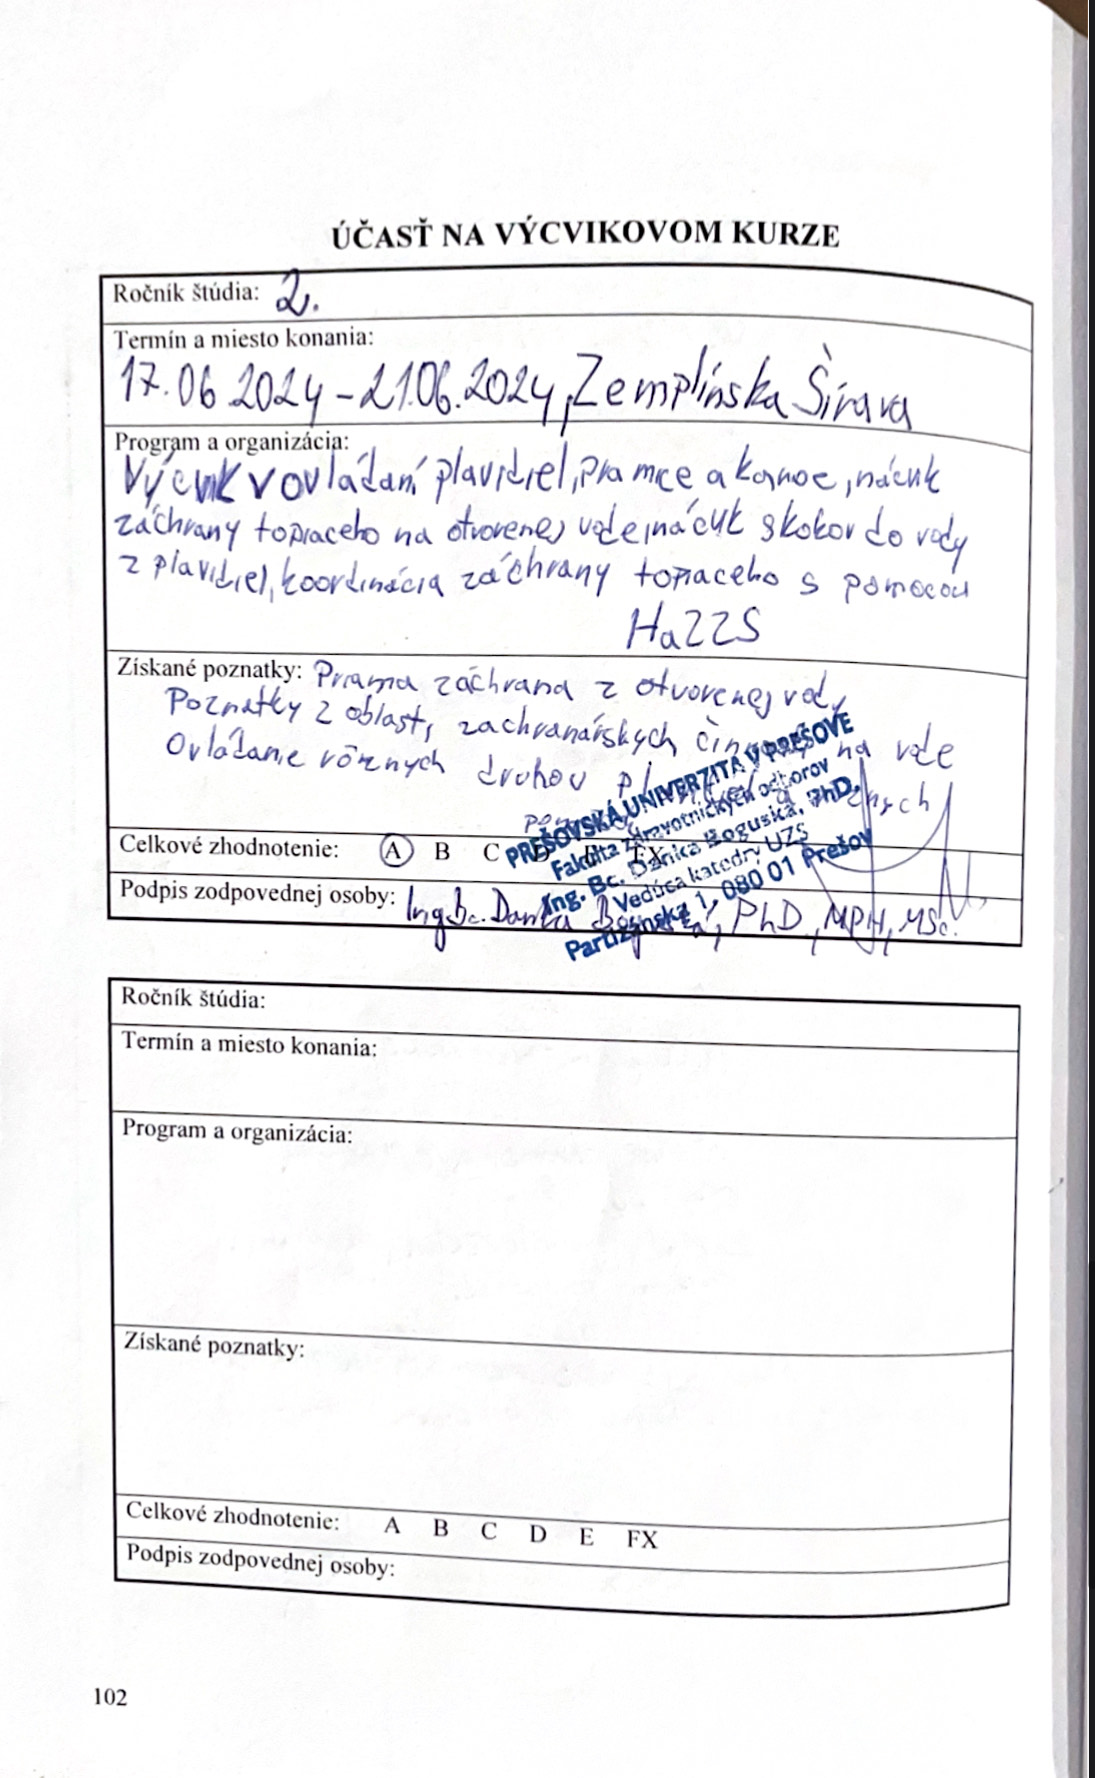 ÚČASŤ NA VÝCVIKOVOM KURZE
Ročník štúdia: 2.
Termín a miesto konania:
17.06.2024-21.06.2024, Zemplínska Šírava
Program a organizácia:
Výcvik v ovládaní plavidiel, pramce a kanoe, nácvik
záchrany topiaceho na otvorenej vode, nácvik skokov do vody
z plavidiel, koordinácia záchrany topiaceho s pomocou
HaZZS
Získané poznatky: Priama záchrana z otvorenej vody
Poznatky z oblasti zachranárskych na vode
Ovládanie rôznych druhov
Celkové zhodnotenie: A B C D E FX
PREŠOVSKÁ UNIVERZITA V PREŠOVE
Fakulta zdravotníckych odborov
Ing. Bc. Danka Boguská, PhD.
Vedúca katedry UZS
Partizánska 1, 080 01 Prešov
Podpis zodpovednej osoby: Ing. Bc. Danka Boguská, PhD., MPH, MSc.
Ročník štúdia:
Termín a miesto konania:
Program a organizácia:
Získané poznatky:
Celkové zhodnotenie: A B C D E FX
Podpis zodpovednej osoby:
102